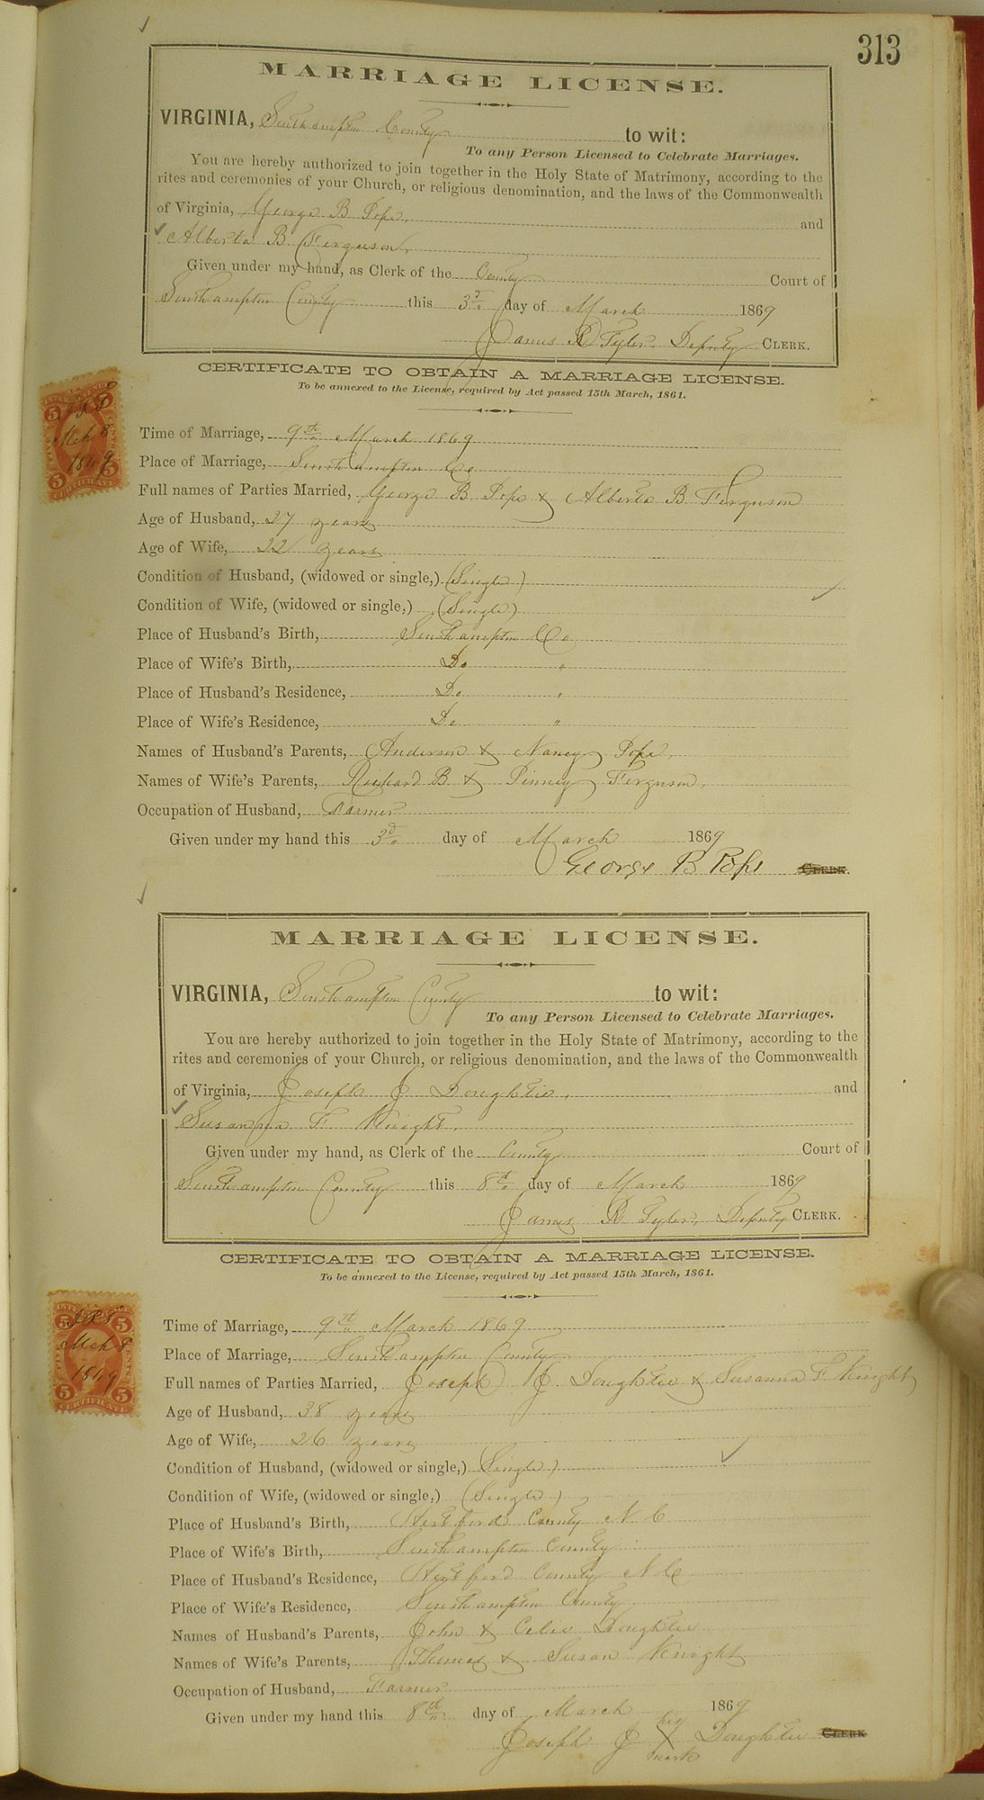 313
MARRIAGE LICENSE.
VIRGINIA, Southampton County to wit:
To any Person Licensed to Celebrate Marriages.
You are hereby authorized to join together in the Holy State of Matrimony, according to the
rites and ceremonies of your Church, or religious denomination, and the laws of the Commonwealth
of Virginia, George B Pope, and
Alberta B Ferguson,
Given under my hand, as Clerk of the County Court of
Southampton County this 3d day of March 1869
James R Tyler, Deputy CLERK.
CERTIFICATE TO OBTAIN A MARRIAGE LICENSE.
To be annexed to the License, required by Act passed 15th March, 1861.
Mch 8
1869
Time of Marriage, 9th March 1869
Place of Marriage, Southampton Co
Full names of Parties Married, George B Pope & Alberta B Ferguson
Age of Husband, 27 years
Age of Wife, 22 years
Condition of Husband, (widowed or single,) (Single)
Condition of Wife, (widowed or single,) (Single)
Place of Husband's Birth, Southampton Co
Place of Wife's Birth, Do "
Place of Husband's Residence, Do "
Place of Wife's Residence, Do "
Names of Husband's Parents, Anderson & Nancy Pope,
Names of Wife's Parents, Richard B & Pinney Ferguson,
Occupation of Husband, Farmer
Given under my hand this 3d day of March 1869
George B Pope CLERK.
MARRIAGE LICENSE.
VIRGINIA, Southampton County to wit:
To any Person Licensed to Celebrate Marriages.
You are hereby authorized to join together in the Holy State of Matrimony, according to the
rites and ceremonies of your Church, or religious denomination, and the laws of the Commonwealth
of Virginia, Joseph J Doughtie, and
Susanna F Knight,
Given under my hand, as Clerk of the County Court of
Southampton County this 8th day of March 1869
James R Tyler, Deputy CLERK.
CERTIFICATE TO OBTAIN A MARRIAGE LICENSE.
To be annexed to the License, required by Act passed 15th March, 1861.
Mch 8
1869
Time of Marriage, 9th March 1869
Place of Marriage, Southampton County
Full names of Parties Married, Joseph J. Doughtie & Susanna F Knight
Age of Husband, 38 years
Age of Wife, 26 years
Condition of Husband, (widowed or single,) Single)
Condition of Wife, (widowed or single,) (Single)
Place of Husband's Birth, Hertford County N C
Place of Wife's Birth, Southampton County
Place of Husband's Residence, Hertford County N C
Place of Wife's Residence, Southampton County
Names of Husband's Parents, John & Celia Doughtie
Names of Wife's Parents, Thomas & Susan Knight
Occupation of Husband, Farmer
Given under my hand this 8th day of March 1869
his
Joseph J X Doughtie CLERK
mark